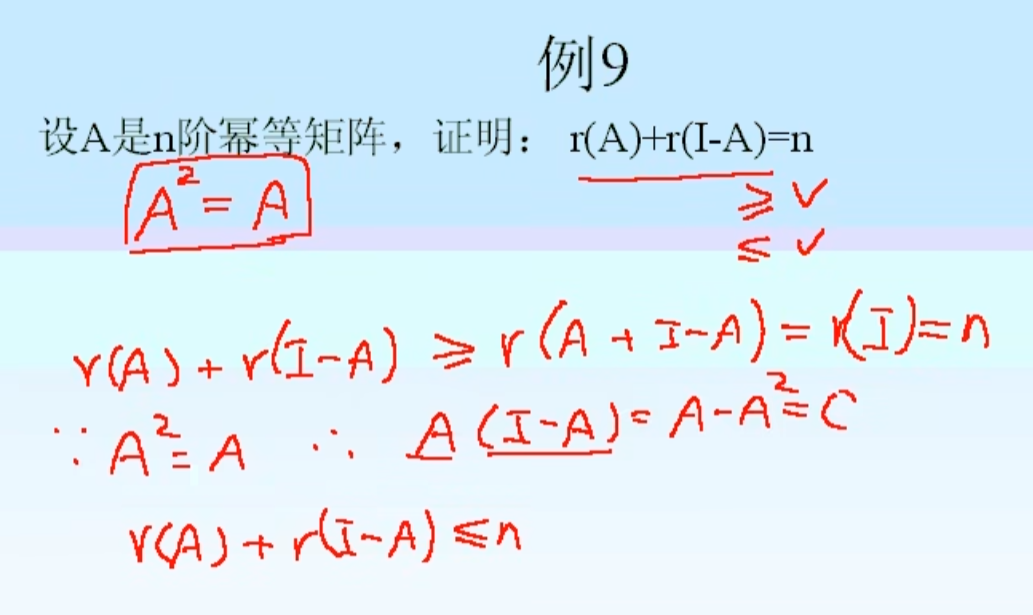 例9
设A是n阶幂等矩阵，证明： r(A)+r(I-A)=n
A² = A
≥ ✓
≤ ✓
r(A) + r(I-A) ≥ r(A + I-A) = r(I) = n
∵ A² = A ∴ A(I-A) = A-A² = C
r(A) + r(I-A) ≤ n